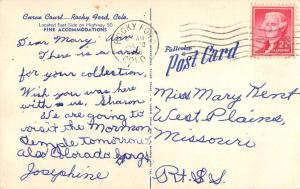 Curve Court—Rocky Ford, Colo.
Located East Side on Highway 50
FINE ACCOMMODATIONS
Dear Mary,
There is a card
for your collection.
Wish you was here
with us, Sharon
We are going to
visit the Mormon
temple tomorrow
also Colorado
Josephine
ROCKY FORD
AM
COLO.
Post Card
2¢
Miss Mary Kent
West Plains,
Missouri